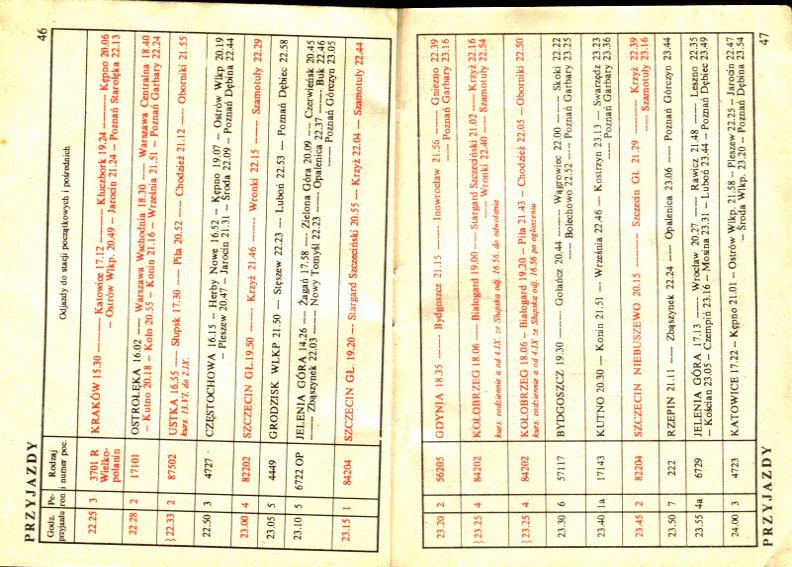 46
PRZYJAZDY
Godz. przyjazdu | Peron | Rodzaj i numer poc. | Odjazdy do stacji początkowych i pośrednich
22.25 3 3701 R Wielkopolanin KRAKÓW 15.30 —— Katowice 17.12 —— Kluczbork 19.24 —— Kępno 20.06
– Ostrów Wlkp. 20.49 – Jarocin 21.24 – Poznań Starołęka 22.13
22.28 2 17101 OSTROŁĘKA 16.02 —— Warszawa Wschodnia 18.30 —— Warszawa Centralna 18.40
– Kutno 20.18 – Koło 20.55 – Konin 21.16 – Września 21.51 – Poznań Garbary 22.24
}22.33 2 87502 USTKA 16.55 —— Słupsk 17.30 —— Piła 20.52 —— Chodzież 21.12 —— Oborniki 21.55
kurs. 13.VI. do 2.IX.
22.50 3 4727 CZĘSTOCHOWA 16.15 – Herby Nowe 16.52 – Kępno 19.07 – Ostrów Wlkp 20.19
– Pleszew 20.47 – Jarocin 21.31 – Środa 22.09 – Poznań Dębina 22.44
23.00 4 82202 SZCZECIN GŁ.19.50 —— Krzyż 21.46 —— Wronki 22.15 —— Szamotuły 22.29
23.05 5 4449 GRODZISK WLKP 21.50 — Stęszew 22.23 — Luboń 22.53 — Poznań Dębiec 22.58
23.10 5 6722 OP JELENIA GÓRA 14.26 —— Żagań 17.58 —— Zielona Góra 20.09 —— Czerwieńsk 20.45
—— Zbąszynek 22.03 —— Nowy Tomyśl 22.23 —— Opalenica 22.37 —— Buk 22.46
—— Poznań Górczyn 23.05
23.15 1 84204 SZCZECIN GŁ. 19.20 — Stargard Szczeciński 20.55 — Krzyż 22.04 — Szamotuły 22.44
23.20 2 56205 GDYNIA 18.35 —— Bydgoszcz 21.15 —— Inowrocław 21.56 —— Gniezno 22.39
—— Poznań Garbary 23.16
}23.25 4 84202 KOŁOBRZEG 18.06 —— Białogard 19.00 —— Stargard Szczeciński 21.02 —— Krzyż 22.16
—— Wronki 22.40 —— Szamotuły 22.54
kurs. codziennie a od 4.IX ze Słupska odj. 16.56. do odwołania
}23.25 4 84202 KOŁOBRZEG 18.06 – Białogard 19.20 – Piła 21.43 – Chodzież 22.05 – Oborniki 22.50
kurs. codziennie a od 4.IX ze Słupska odj. 16.56 po ogłoszeniu
23.30 6 57117 BYDGOSZCZ 19.30 —— Gołańcz 20.44 —— Wągrowiec 22.00 —— Skoki 22.22
—— Bolechowo 22.52 —— Poznań Garbary 23.25
23.40 1a 17143 KUTNO 20.30 — Konin 21.51 — Września 22.46 — Kostrzyn 23.13 — Swarzędz 23.23
—— Poznań Garbary 23.36
23.45 2 82204 SZCZECIN NIEBUSZEWO 20.15 —— Szczecin Gł. 21.29 —— Krzyż 22.39
—— Szamotuły 23.16
23.50 7 222 RZEPIN 21.11 —— Zbąszynek 22.24 —— Opalenica 23.06 —— Poznań Górczyn 23.44
23.55 4a 6729 JELENIA GÓRA 17.13 —— Wrocław 20.27 —— Rawicz 21.48 —— Leszno 22.35
– Kościan 23.05 – Czempiń 23.16 – Mosina 23.31 – Luboń 23.44 – Poznań Dębiec 23.49
24.00 3 4723 KATOWICE 17.22 – Kępno 21.01 – Ostrów Wlkp. 21.58 – Pleszew 22.25 – Jarocin 22.47
– Środa Wlkp. 23.20 – Poznań Dębina 23.54
PRZYJAZDY
47